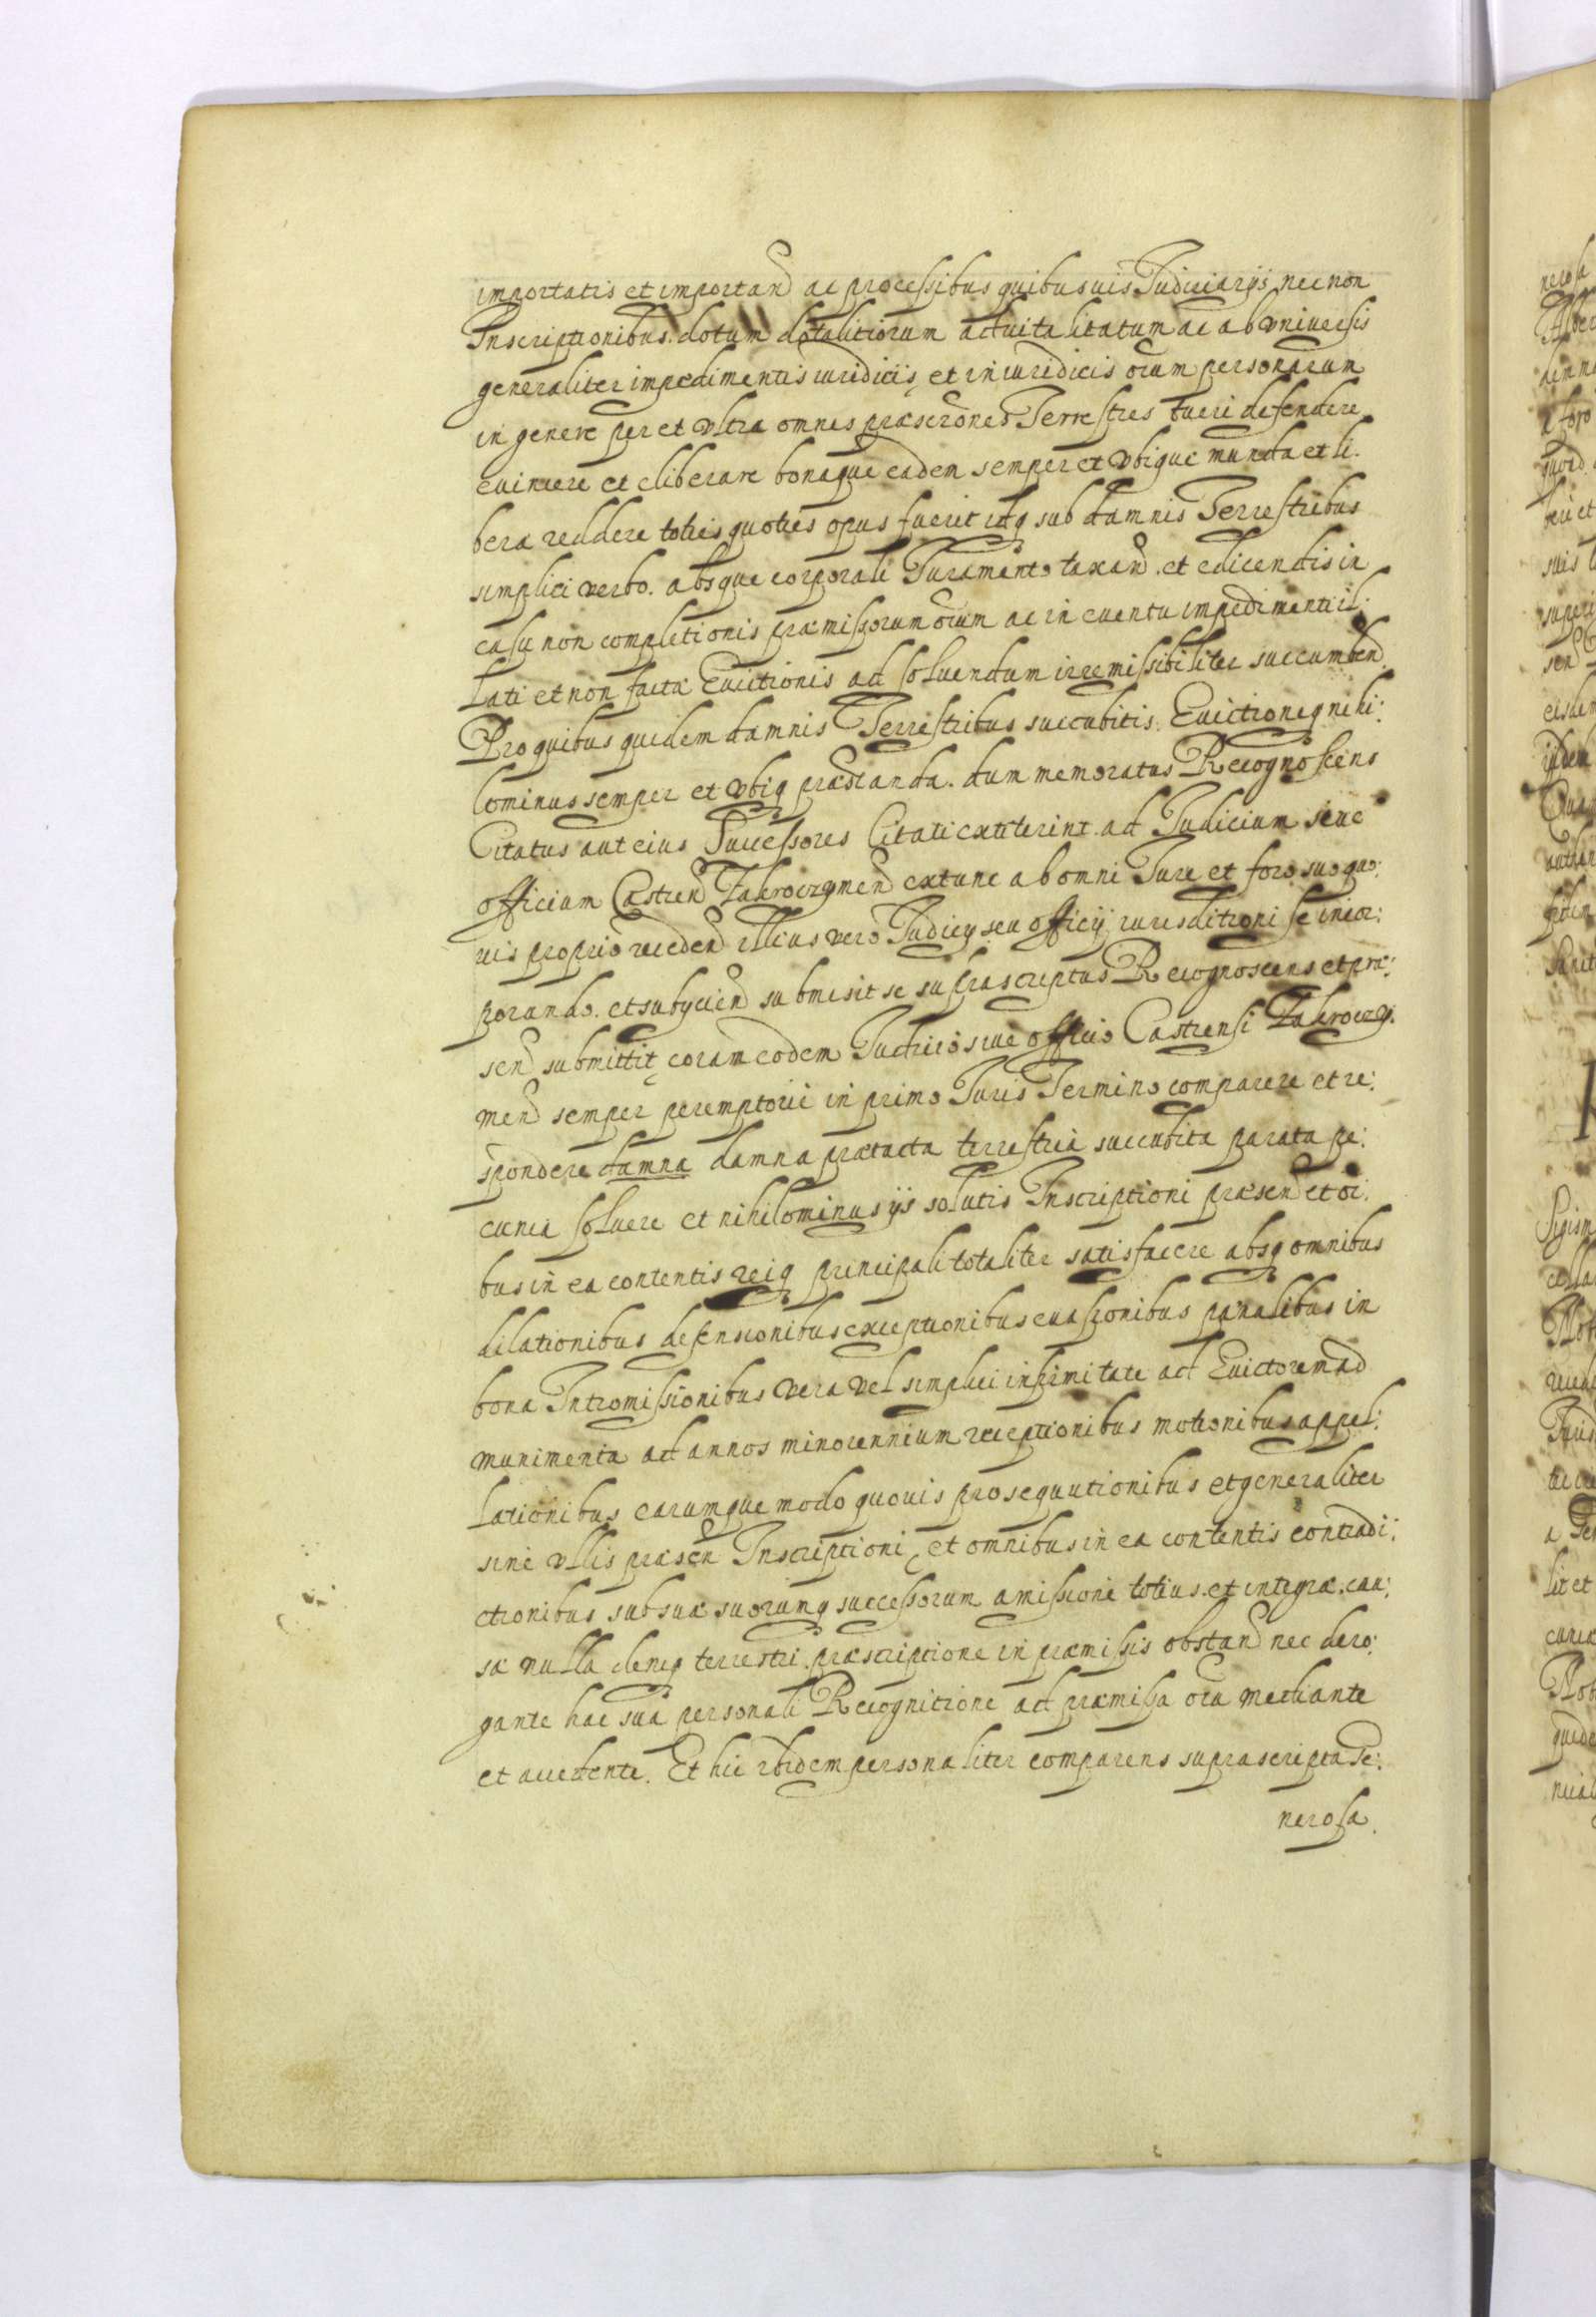 importatis et importand ac processibus quibusuis Judiciarijs, nec non
Inscriptionibus dotum dotalitiorum aduitalitatum ac ab vniuersis
generaliter impedimentis iuridicis, et iniuridicis oium personarum
in genere per et vltra omnes præscrõnes Terrestres tueri defendere
euincere et eliberare bonaque eadem semper et vbique munda et li:
bera reddere toties quoties opus fuerit idq sub damnis Terrestribus
simplici verbo absque corporali Juramento taxand et edicendis in
casu non completionis præmissorum oium ac in euentu impedimenti il:
lati et non factæ Euictionis ad soluendum irremissibiliter succumbend
Pro quibus quidem damnis Terrestribus succubitis Euictioneq nihi:
lominus semper et vbiq præstanda. dum memoratus Recognoscens
Citatus aut eius Successores Citati extiterint ad Judicium siue
officium Castren Zakroczymen extunc ab omni Jure et foro suo quo:
uis proprio receden illius vero Judicij seu officij iurisditioni se incor:
porando. et subijcien submisit se suprascriptus Recognoscens et præ:
sen submittit, coram eodem Judicio siue officio Castrensi Zakroczy:
men semper peremptorie in primo Juris Termino comparere et re:
spondere damna damna prætacta terrestria succubita parata pe:
cunia soluere et nihilominus ijs solutis Inscriptioni præsen et oi:
bus in ea contentis reiq principali totaliter satisfacere absq omnibus
dilationibus defensionibus exceptionibus euasionibus pænalibus in
bona Intromissionibus vera vel simplici infirmitate ad Euictorem ad
munimenta ad annos minorennium receptionibus motionibus appel:
lationibus earumque modo quouis prosequutionibus et generaliter
sine vllis præsen Inscriptioni, et omnibus in ea contentis contradi:
ctionibus sub sua suorumq successorum amissione totius et integræ cau:
sæ nulla deniq terrestri præscriptione in præmissis obstan nec dero:
gante hac sua personali Recognitione ad præmissa oĩa mediante
et accedente. Et hic ibidem personaliter comparens suprascripta Ge:
nerosa.